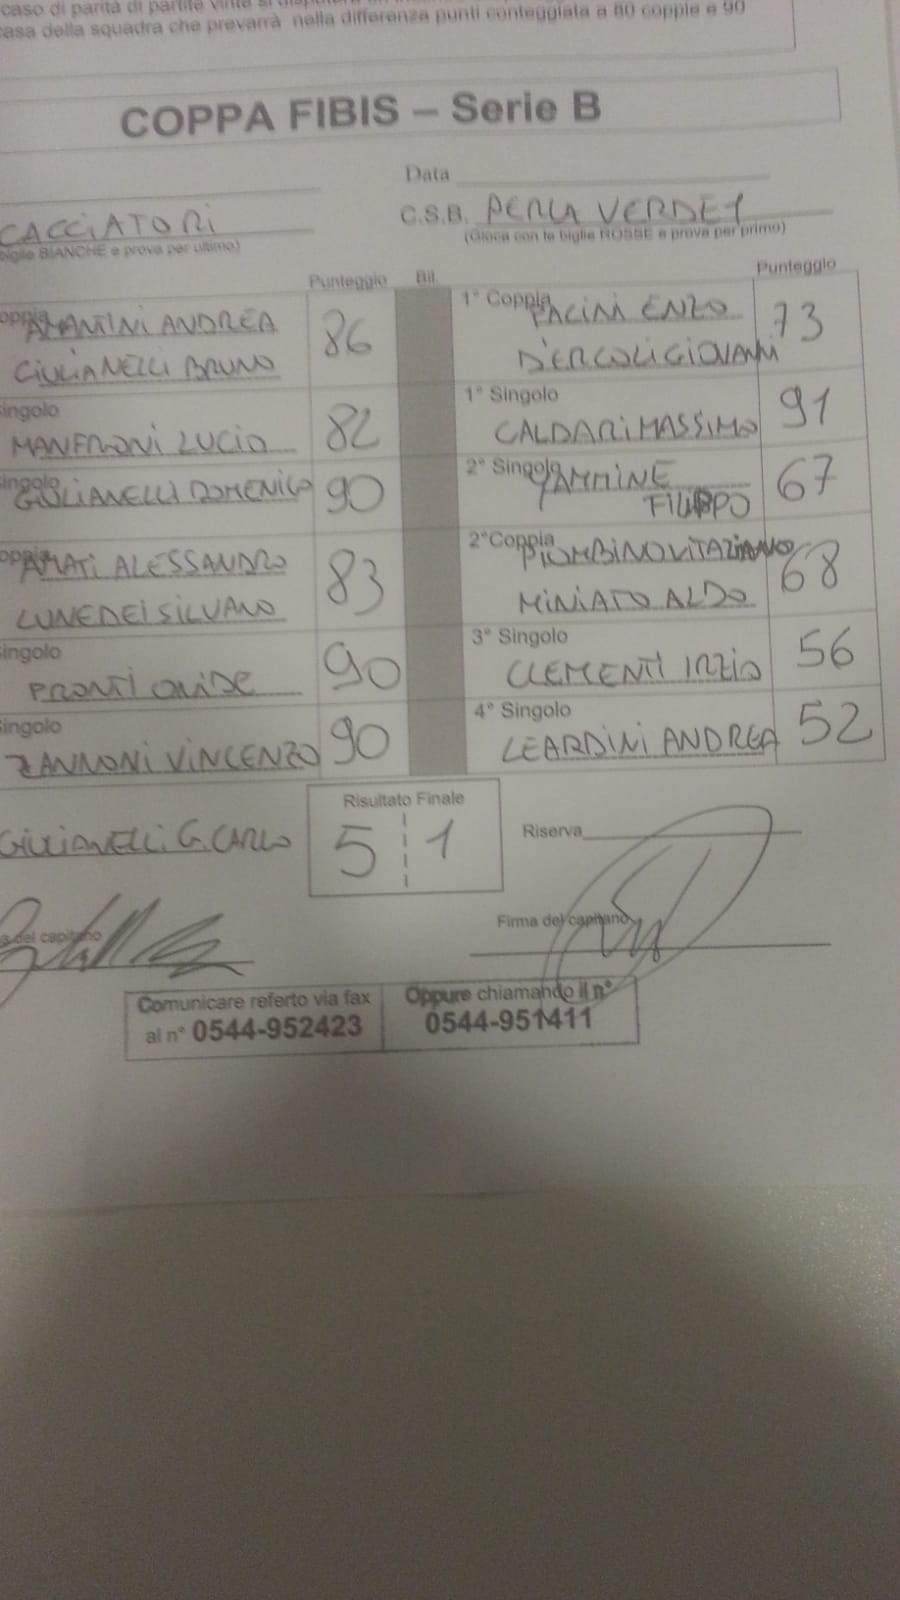 caso di parità di partite vinte si
casa della squadra che prevarrà nella differenza punti conteggiata a 80 coppie e 90
COPPA FIBIS – Serie B
Data
CACCIATORI
C.S.B. PERLA VERDE 1
biglie BIANCHE e prova per ultimo)
(Gioca con le biglie ROSSE e prova per primo)
Punteggio Bil. Punteggio
oppia AMANTINI ANDREA 86 1° Coppia PACINI ENZO 73
GIULIANELLI BRUNO D'ERCOLI GIOVANNI
Singolo 1° Singolo
MANFRONI LUCIO 82 CALDARI MASSIMO 91
Singolo GIULIANELLI DOMENICO 90 2° Singolo YAMMINE 67
FILIPPO
oppia AMATI ALESSANDRO 83 2° Coppia PIOMBINO VITAZIANO 68
LUNEDEI SILVANO MINIATO ALDO
Singolo 3° Singolo
PRONTI OVIDE 90 CLEMENTI IRZIO 56
Singolo 4° Singolo
ZANNONI VINCENZO 90 LEARDINI ANDREA 52
Risultato Finale
GIULIANELLI G. CARLO 5 1 Riserva
del capitano Firma del capitano
Comunicare referto via fax
al n° 0544-952423
Oppure chiamando il n°
0544-951411